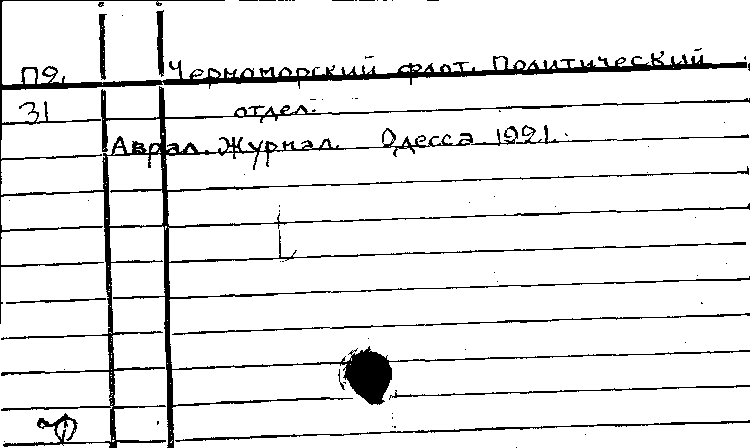 П9. Черноморский флот. Политический
31 отдел.
Аврал. Журнал. Одесса 1921.